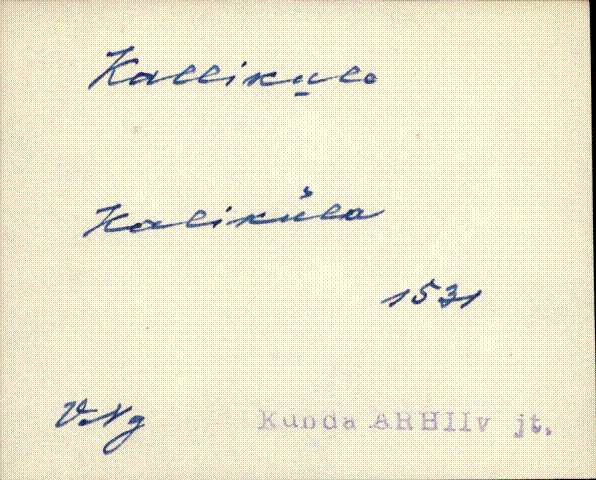 Kallikülo
Kaliküla
1531
V-Ng
Kunda ARHIIv jt.